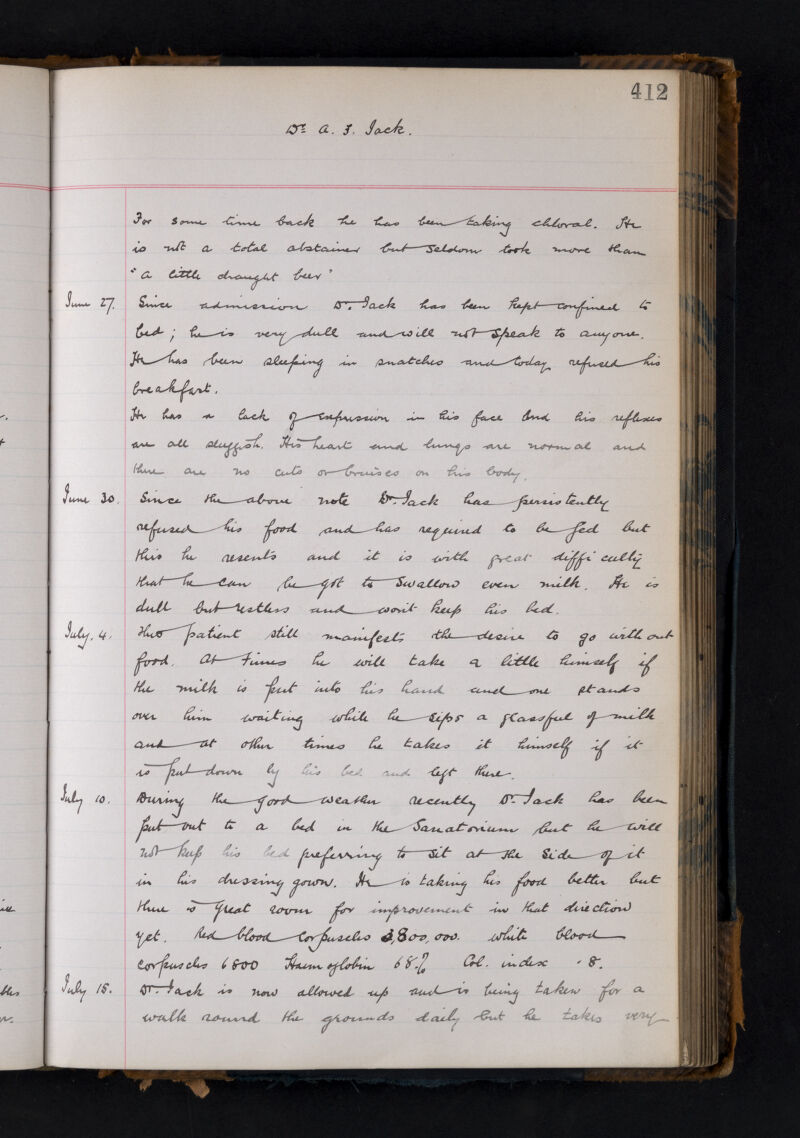 412
Dr. A. F. Jack.
For some time back he has been taking chloral. He
is not a total abstainer but seldom took more than
"a little draught beer"
June 27. Since admission Dr. Jack has been kept confined to
bed; he is very dull and will not speak to anyone.
He has been sleeping in snatches and today refused his
breakfast.
He has a lack of expression in his face and his reflexes
are all sluggish. His heart and lungs are normal and
there are no cuts or bruises on his body.
June 30. Since the above note Dr. Jack has persistently
refused his food and has required to be fed but
this he resents and it is with great difficulty
that he can be got to swallow even milk. He is
dull but restless and won't keep his bed.
July. 4. This patient still manifests the desire to go without
food. At times he will take a little himself if
the milk is put into his hand and one stands
over him waiting while he sips a glassful of milk
and at other times he takes it himself if it
is put down by his bed and left there.
July 10. During the good weather recently Dr. Jack has been
put out to a bed in the Sanatorium but he will
not keep his bed preferring to sit at the side of it
in his dressing gown. He is taking his food better but
there is great room for improvement in that direction
yet. Red blood corpuscles 3,800,000. white blood
corpuscles 6800 Haemoglobin 68% Col. index .8.
July 18. Dr. Jack is now allowed up and is being taken for a
walk round the grounds daily but he takes very